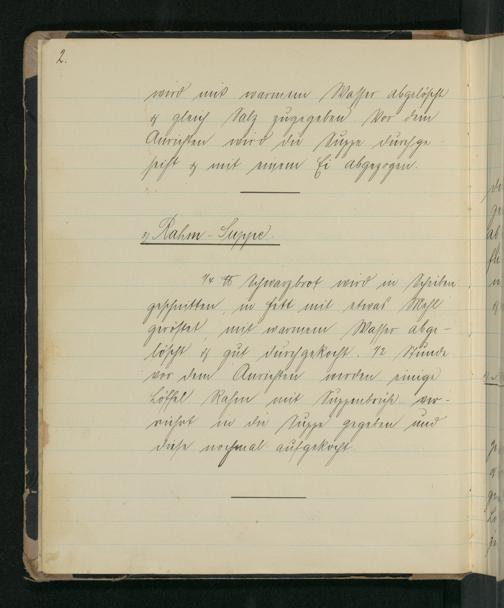 2.
wird mit warmem Wasser abgelöscht
& gleich Salz zugegeben. Vor dem
Anrichten wird die Suppe durchge-
seiht & mit einem Ei abgezogen.
Rahm-Suppe.
1/4 ℔ Schwarzbrot wird in Scheiben
geschnitten, in Fett mit etwas Mehl
geröstet, mit warmem Wasser abge-
löscht & gut durchgekocht. 1/2 Stunde
vor dem Anrichten werden einige
Löffel Rahm mit Suppenbrühe ver-
rührt in die Suppe gegeben und
diese nochmal aufgekocht.